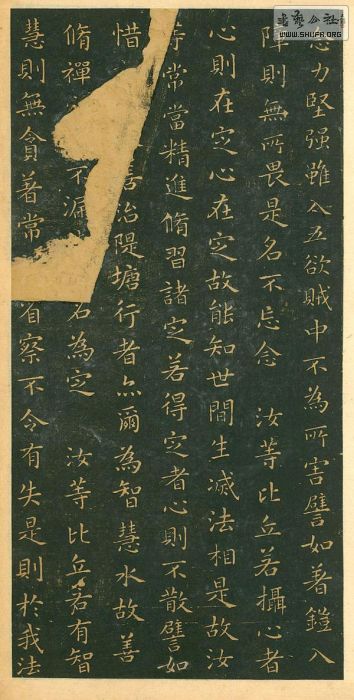 念力堅强雖入五欲賊中不為所害譬如著鎧入
陣則無所畏是名不忘念 汝等比丘若攝心者
心則在定心在定故能知世間生滅法相是故汝
等常當精進脩習諸定若得定者心則不散譬如
惜 善治隄塘行者亦爾為智慧水故善
脩禪 不漏 名為定 汝等比丘若有智
慧則無貪著常 省察不令有失是則於我法
書法公社
WWW.SHUFR.ORG